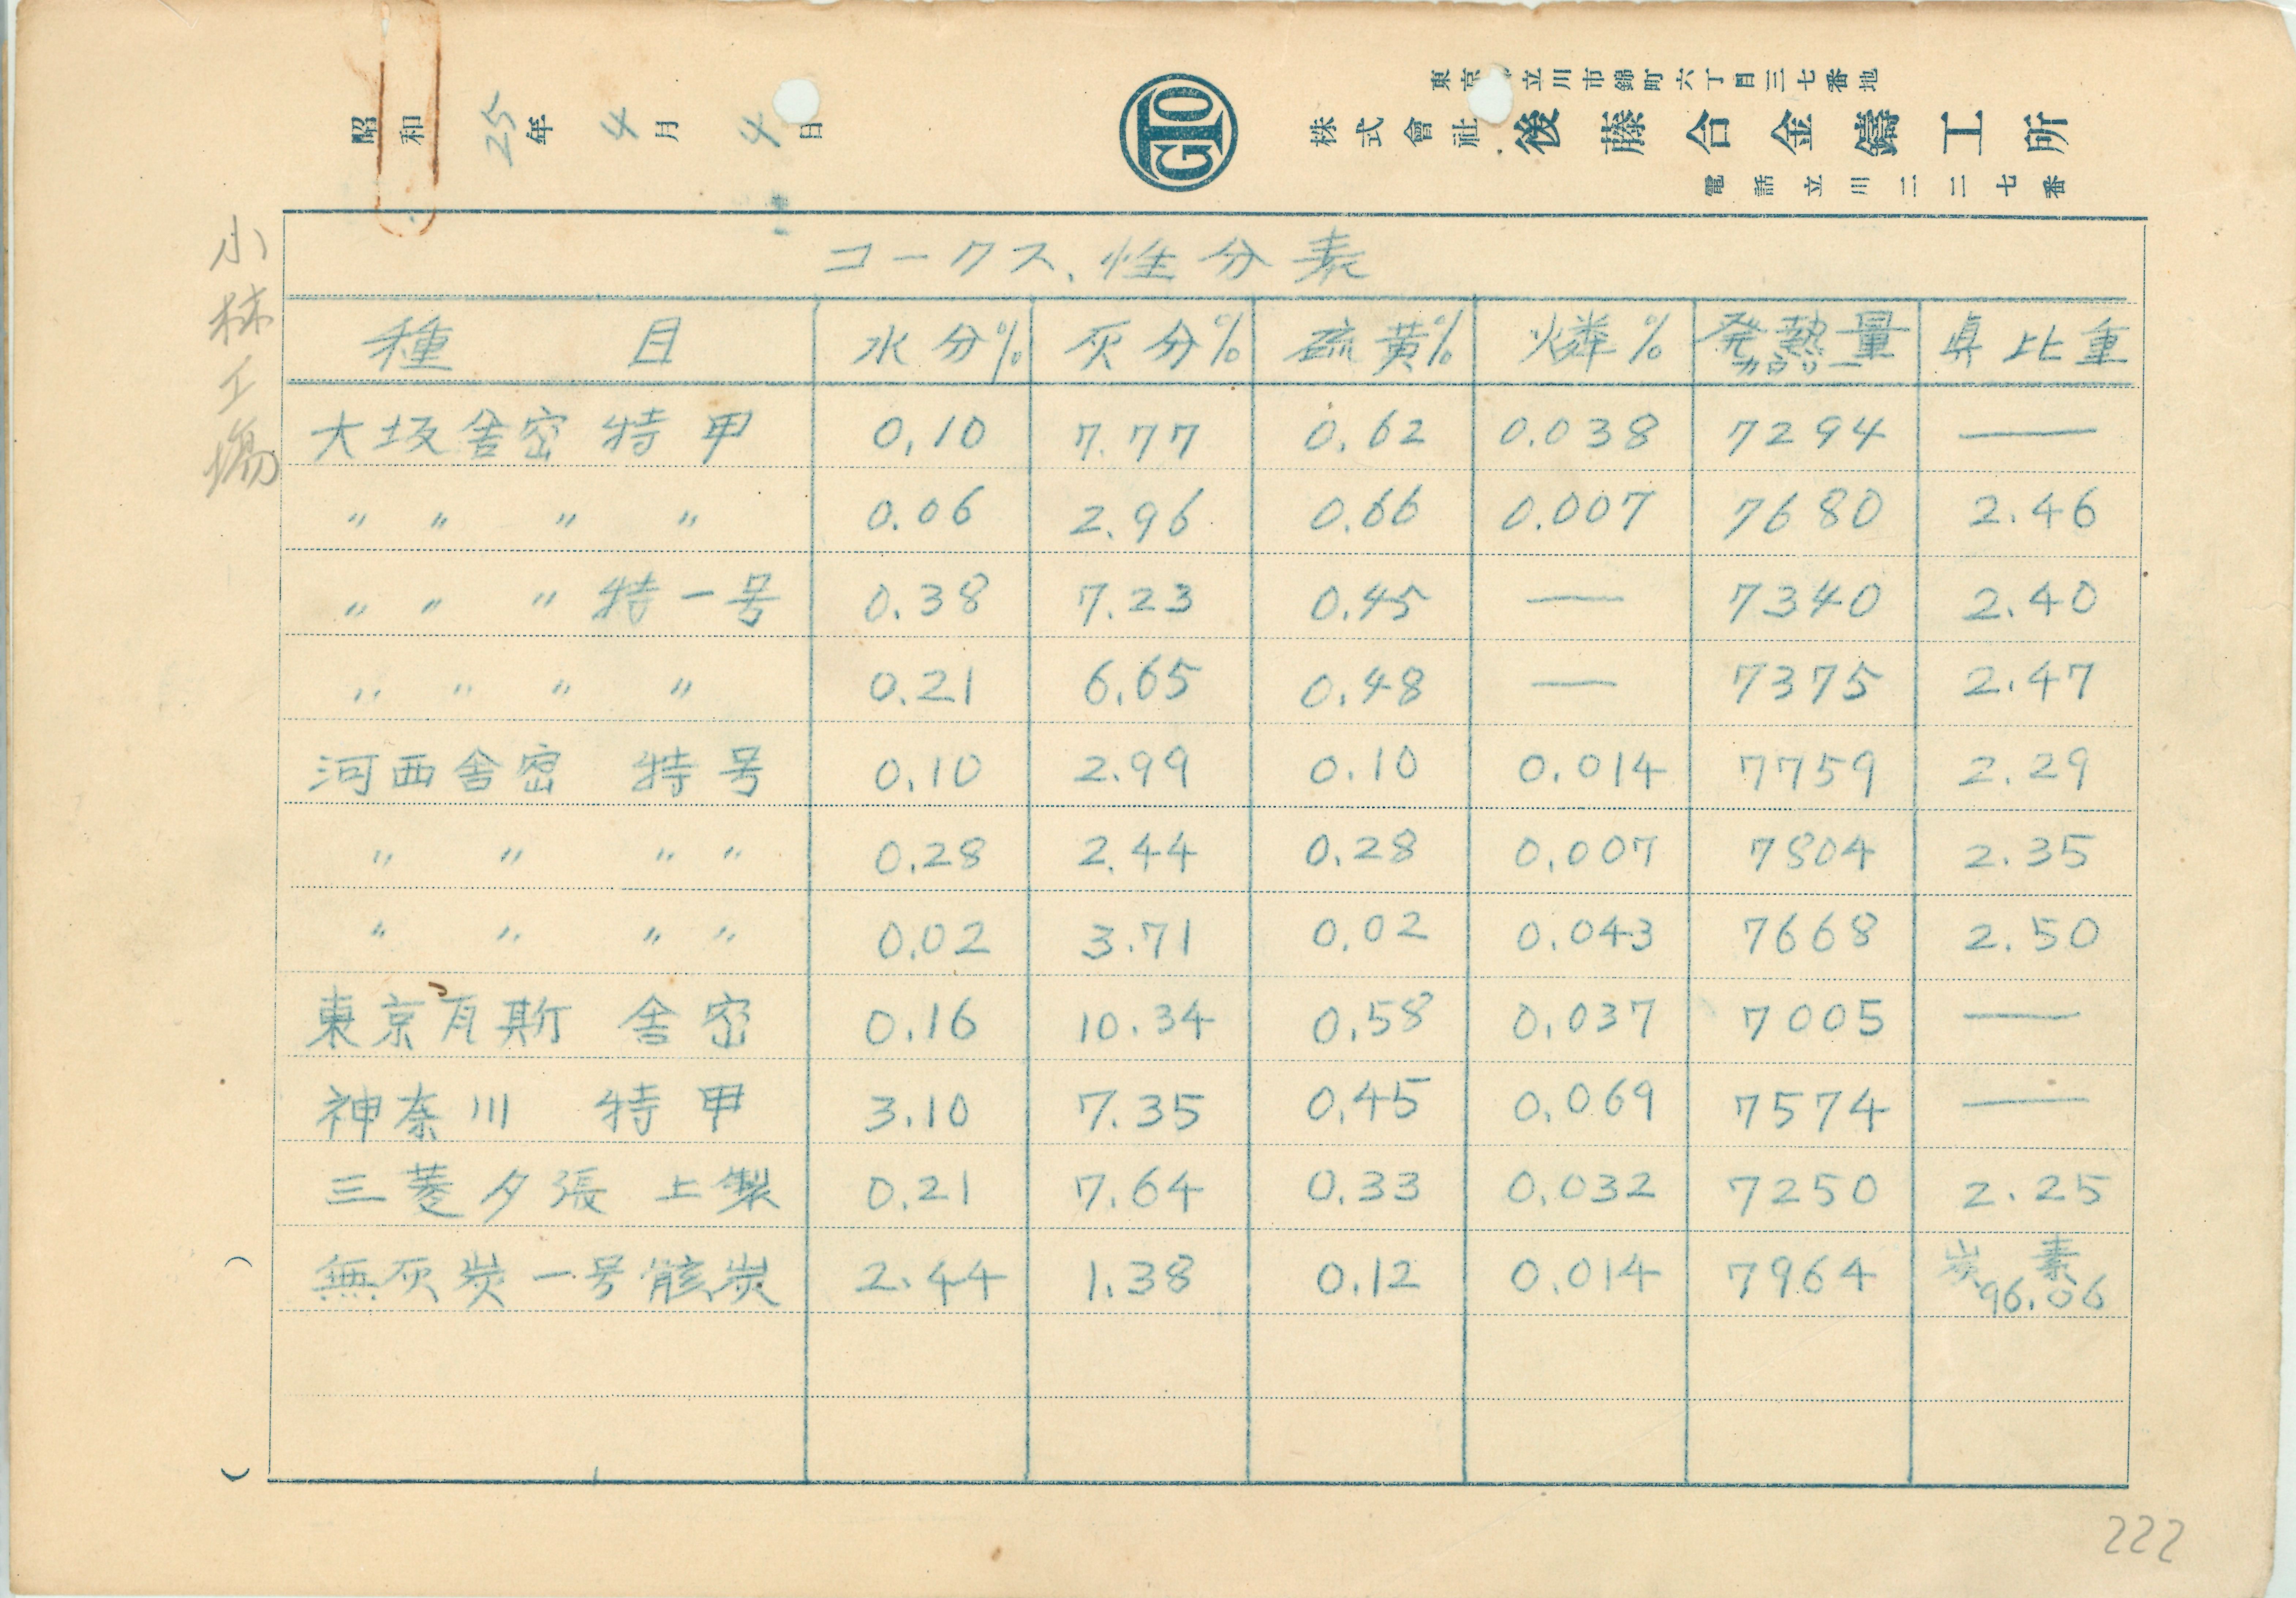 昭和25年4月4日
GTO
東京 立川市錦町六丁目三七番地
株式會社 後藤合金鑄工所
電話立川二二七番
小林工場
コークス、性分表
種 目 水分% 灰分% 硫黄% 燐% 発熱量カロリー 真比重
大坂舎密 特甲 0.10 7.77 0.62 0.038 7294 —
〃 〃 〃 〃 0.06 2.96 0.66 0.007 7680 2.46
〃 〃 〃 特一号 0.38 7.23 0.45 — 7340 2.40
〃 〃 〃 〃 0.21 6.65 0.48 — 7375 2.47
河西舎密 特号 0.10 2.99 0.10 0.014 7759 2.29
〃 〃 〃 〃 0.28 2.44 0.28 0.007 7804 2.35
〃 〃 〃 〃 0.02 3.71 0.02 0.043 7668 2.50
東京瓦斯 舎密 0.16 10.34 0.58 0.037 7005 —
神奈川 特甲 3.10 7.35 0.45 0.069 7574 —
三菱夕張 上製 0.21 7.64 0.33 0.032 7250 2.25
無灰炭一号骸炭 2.44 1.38 0.12 0.014 7964 炭素 96.06
( )
222